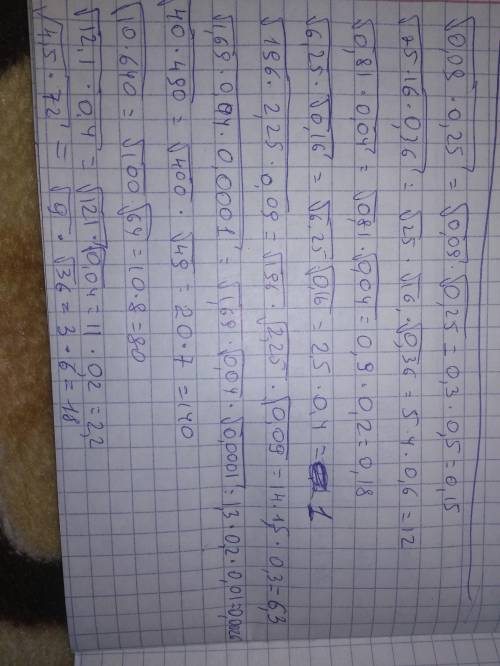 √0,09 · 0,25 = √0,09 · √0,25 = 0,3 · 0,5 = 0,15
√25 · 16 · 0,36 = √25 · √16 · √0,36 = 5 · 4 · 0,6 = 12
√0,81 · 0,04 = √0,81 · √0,04 = 0,9 · 0,2 = 0,18
√6,25 · √0,16 = √6,25 √0,16 = 2,5 · 0,4 = 1
√196 · 2,25 · 0,09 = √196 · √2,25 · √0,09 = 14 · 1,5 · 0,3 = 6,3
√1,69 · 0,04 · 0,0001 = √1,69 · √0,04 · √0,0001 = 1,3 · 0,2 · 0,01 = 0,0026
√40 · 490 = √400 · √49 = 20 · 7 = 140
√10 · 640 = √100 √64 = 10 · 8 = 80
√12,1 · 0,4 = √121 √0,04 = 11 · 02 = 2,2
√4,5 · 72 = √9 · √36 = 3 · 6 = 18